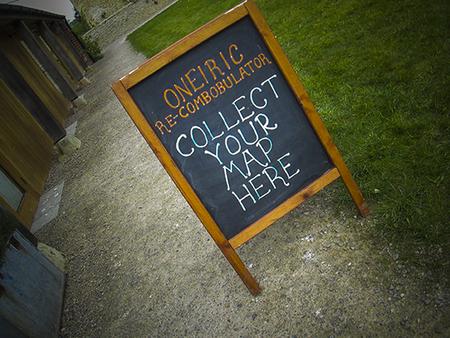 ONEIRIC
RE-COMBOBULATOR
COLLECT
YOUR
MAP
HERE